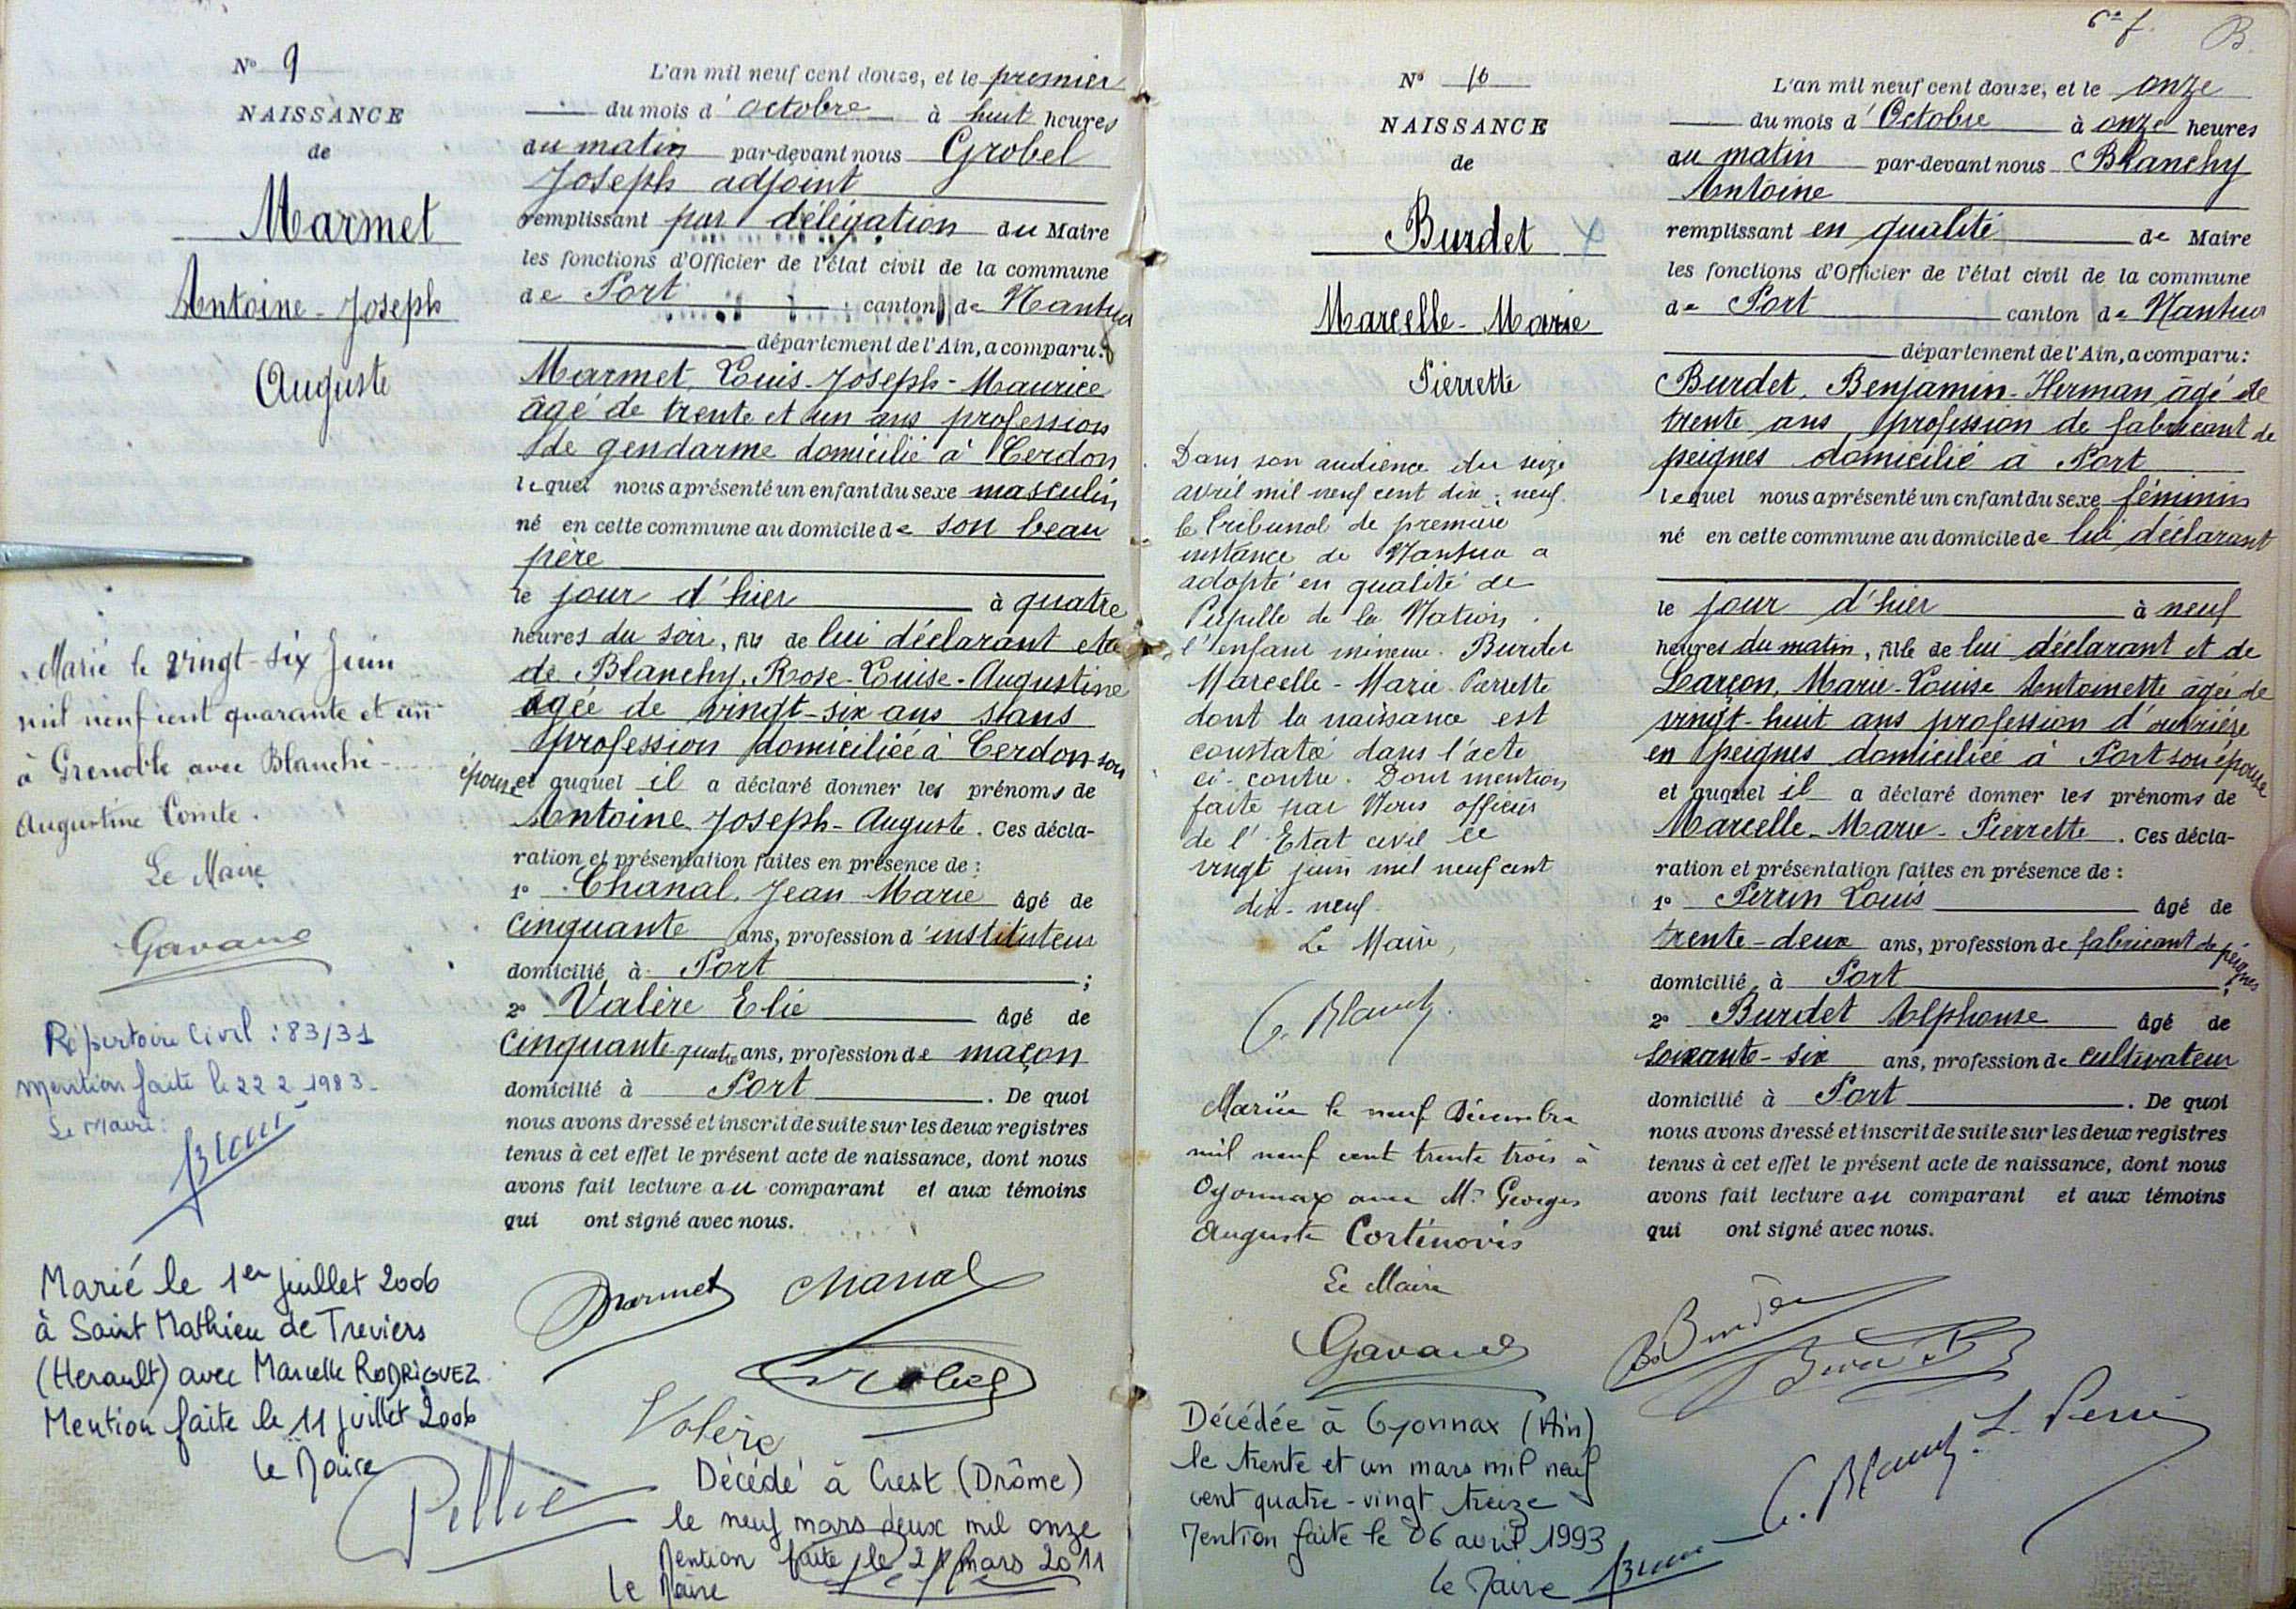 N° 9
NAISSANCE
de
Marmet
Antoine-Joseph
Auguste
Marié le vingt-six Juin
mil neuf cent quarante et un
à Grenoble avec Blanche-
Augustine Comte.
Le Maire
Gavand
Répertoire Civil : 83/31
mention faite le 22 2 1983.
Le Maire:
Marié le 1er juillet 2006
à Saint Mathieu de Treviers
(Herault) avec Marcelle RODRIGUEZ
Mention faite le 11 juillet 2006
le Maire
L'an mil neuf cent douze, et le premier
du mois d'octobre à huit heures
du matin par-devant nous Grobel
Joseph adjoint
remplissant par délégation du Maire
les fonctions d'Officier de l'état civil de la commune
de Port canton de Nantua
département de l'Ain, a comparu:
Marmet, Louis-Joseph-Maurice
âgé de trente et un ans profession
de gendarme domicilié à Cerdon
lequel nous a présenté un enfant du sexe masculin
né en cette commune au domicile de son beau
père
le jour d'hier à quatre
heures du soir, fils de lui déclarant et
de Blanchy, Rose-Louise-Augustine
âgée de vingt-six ans sans
profession domiciliée à Cerdon son
épouse et auquel il a déclaré donner les prénoms de
Antoine Joseph-Auguste. Ces décla-
ration et présentation faites en présence de :
1° Chanal, Jean Marie âgé de
cinquante ans, profession d'instituteur
domicilié à Port ;
2° Valère Elie âgé de
cinquante-quatre ans, profession de maçon
domicilié à Port . De quoi
nous avons dressé et inscrit de suite sur les deux registres
tenus à cet effet le présent acte de naissance, dont nous
avons fait lecture au comparant et aux témoins
qui ont signé avec nous.
Marmet Chanal
Grobel
Valère
Décédé à Crest (Drôme)
le neuf mars deux mil onze
Mention faite le 21 mars 2011
le Maire
6e f. B.
N° 10
NAISSANCE
de
Burdet
Marcelle-Marie
Pierrette
Dans son audience du seize
avril mil neuf cent dix-neuf.
le Tribunal de première
instance de Nantua a
adopté en qualité de
Pupille de la Nation
l'enfant mineure Burdet
Marcelle-Marie Pierrette
dont la naissance est
constatée dans l'acte
ci-contre. Dont mention
faite par Nous officier
de l'Etat civil le
vingt juin mil neuf cent
dix-neuf.
Le Maire,
C. Blanchy
Mariée le neuf Décembre
mil neuf cent trente trois à
Oyonnax avec Mr Georges
Auguste Corténovis
Le Maire
Gavand
Décédée à Oyonnax (Ain)
le trente et un mars mil neuf
cent quatre-vingt treize
Mention faite le 06 avril 1993
le Maire
L'an mil neuf cent douze, et le onze
du mois d'Octobre à onze heures
du matin par-devant nous Blanchy
Antoine
remplissant en qualité de Maire
les fonctions d'Officier de l'état civil de la commune
de Port canton de Nantua
département de l'Ain, a comparu:
Burdet, Benjamin-Herman âgé de
trente ans profession de fabricant de
peignes domicilié à Port
lequel nous a présenté un enfant du sexe féminin
né en cette commune au domicile de lui déclarant
le jour d'hier à neuf
heures du matin, fille de lui déclarant et de
Larçon, Marie-Louise Antoinette âgée de
vingt-huit ans profession d'ouvrière
en peignes domiciliée à Port son épouse
et auquel il a déclaré donner les prénoms de
Marcelle-Marie-Pierrette. Ces décla-
ration et présentation faites en présence de :
1° Perrin Louis âgé de
trente-deux ans, profession de fabricant de peignes
domicilié à Port ;
2° Burdet Alphonse âgé de
soixante-six ans, profession de cultivateur
domicilié à Port . De quoi
nous avons dressé et inscrit de suite sur les deux registres
tenus à cet effet le présent acte de naissance, dont nous
avons fait lecture au comparant et aux témoins
qui ont signé avec nous.
B. Burdet
Burdet
L. Perrin
C. Blanchy